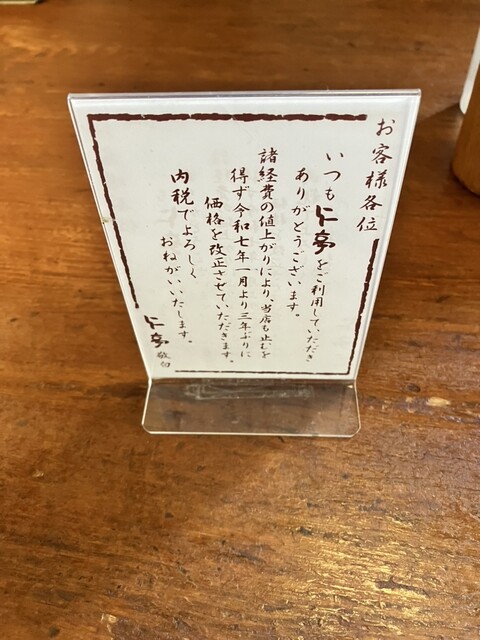 お客様各位
いつも仁亭をご利用していただき
ありがとうございます。
諸経費の値上がりにより、当店も止むを
得ず令和七年一月より三年ぶりに
価格を改正させていただきます。
内税でよろしく
おねがいいたします。
仁亭 敬白